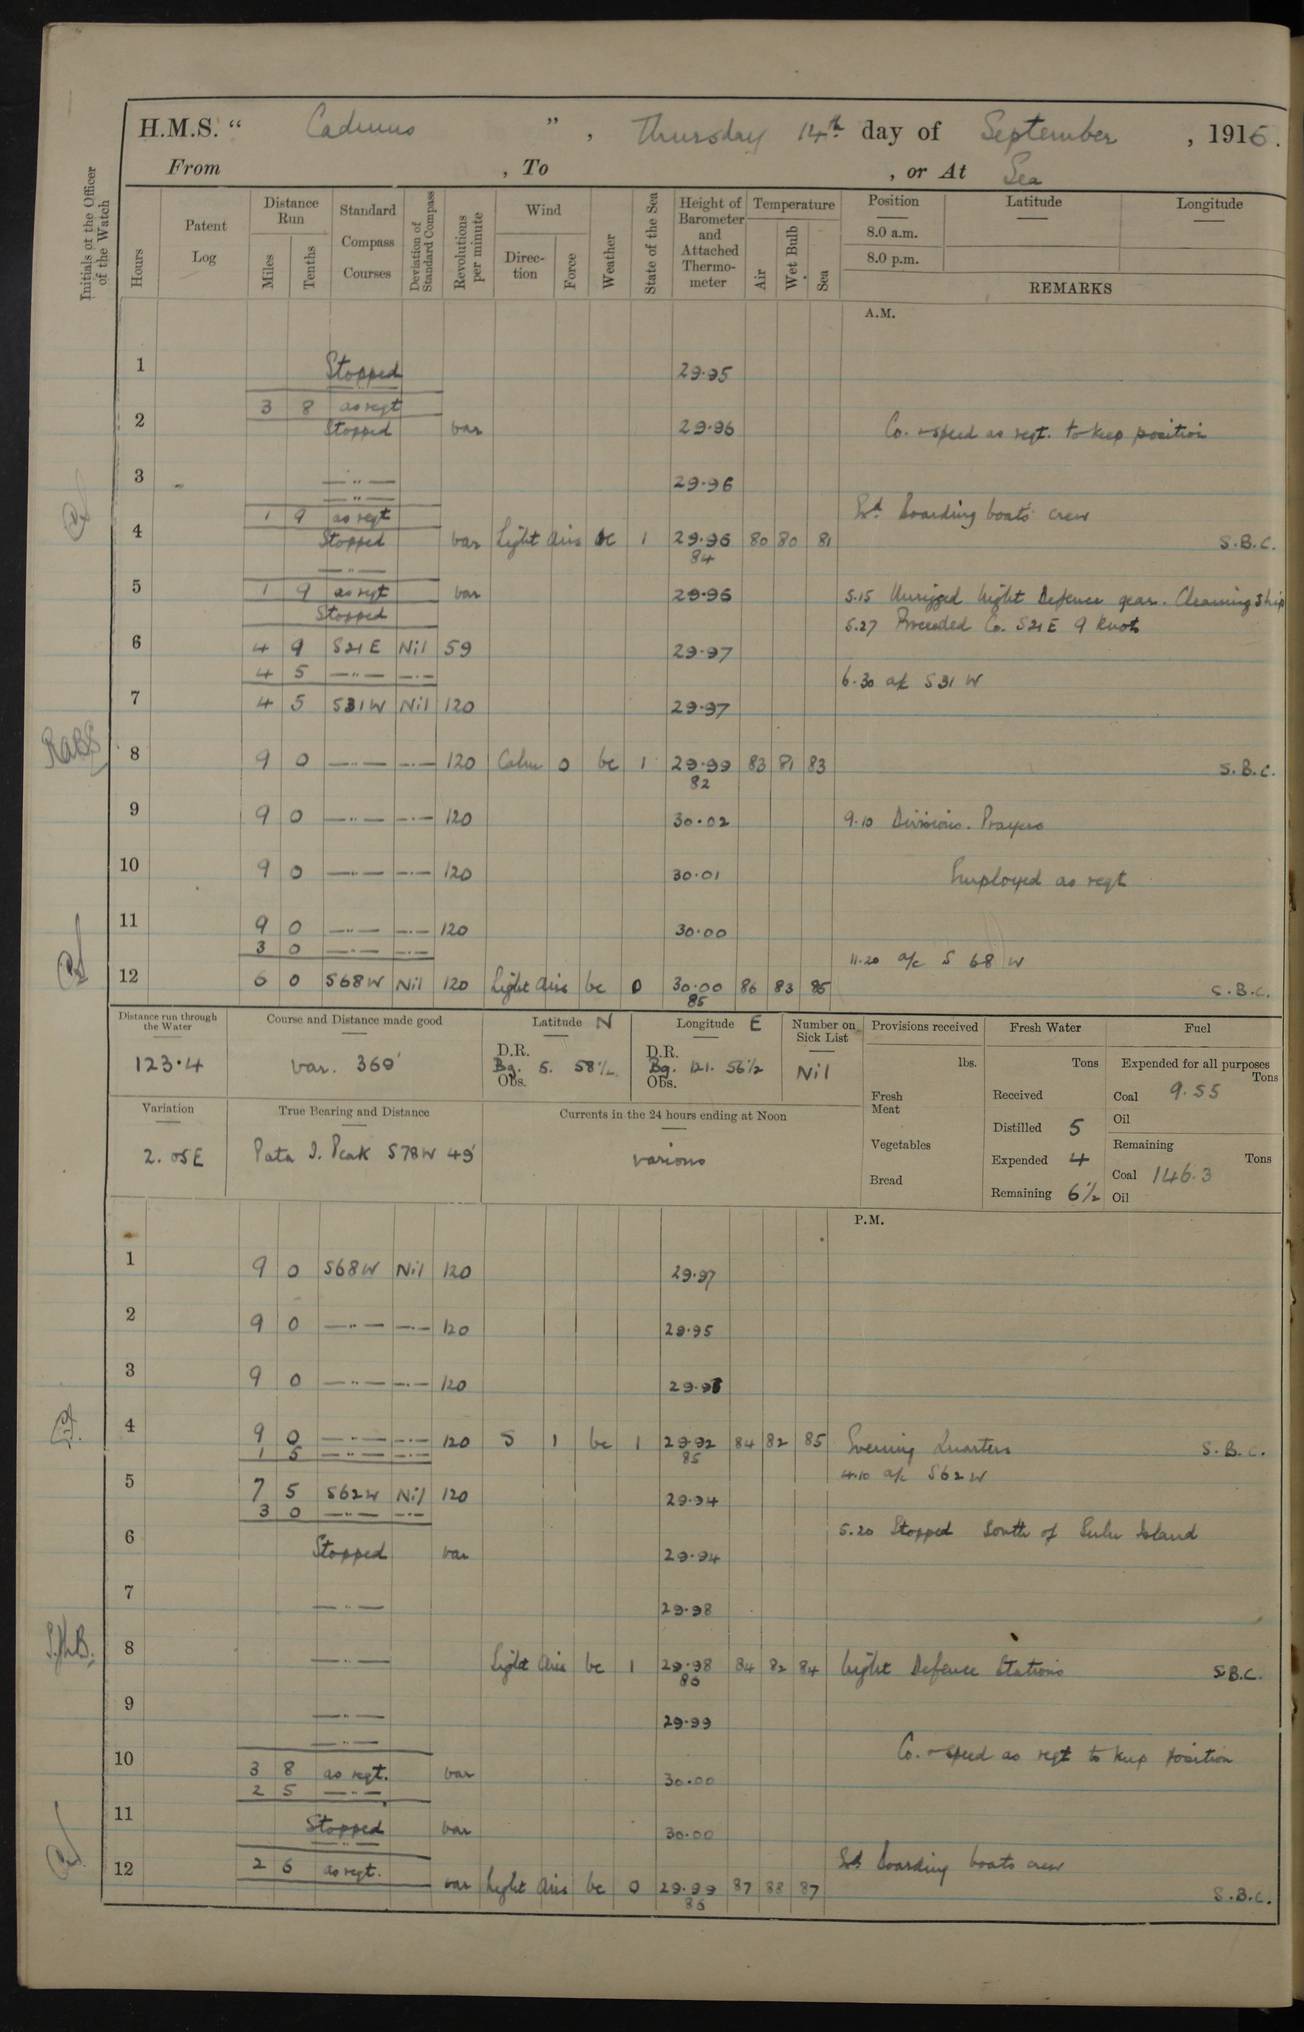 H.M.S. “ Cadmus ” , Thursday 14th day of September , 1916.
From , To , or At Sea
Initials of the Officer of the Watch
Hours
Patent Log
Distance Run
Miles
Tenths
Standard Compass Courses
Deviation of Standard Compass
Revolutions per minute
Wind
Direction
Force
Weather
State of the Sea
Height of Barometer and Attached Thermometer
Temperature
Air
Wet Bulb
Sea
Position Latitude Longitude
8.0 a.m.
8.0 p.m.
REMARKS
A.M.
1 Stopped 29.95
3 8 as reqt
2 Stopped var 29.96 Co. & speed as reqt. to keep position
3 —"— 29.96
—"—
1 9 as reqt Boarding boats crew
4 Stopped var Light airs bc 1 29.96 80 80 81 S.B.C.
84
—"—
5 1 9 as reqt var 29.96 5.15 Unrigged Night Defence gear. Cleaning Ship
Stopped 5.27 Proceeded Co. S21E 9 knots
6 4 9 S21E Nil 59 29.97
4 5 —"— —"— 6.30 a/c S31W
7 4 5 S31W Nil 120 29.97
8 9 0 —"— —"— 120 Calm 0 bc 1 29.99 83 81 83 S.B.C.
82
9 9 0 —"— —"— 120 30.02 9.10 Divisions. Prayers
10 9 0 —"— —"— 120 30.01 Employed as reqt
11 9 0 —"— —"— 120 30.00
3 0 —"— —"— 11.20 a/c S 68 W
12 6 0 S68W Nil 120 Light airs bc 0 30.00 86 83 85 S.B.C.
85
Distance run through the Water
123.4
Course and Distance made good
var. 360'
Latitude N
D.R.
Bg. 5. 58½
Obs.
Longitude E
D.R.
Bg. 121. 56½
Obs.
Number on Sick List
Nil
Provisions received
lbs.
Fresh Meat
Vegetables
Bread
Fresh Water
Tons
Received
Distilled 5
Expended 4
Remaining 6½
Fuel
Expended for all purposes
Tons
Coal 9.55
Oil
Remaining
Tons
Coal 146.3
Oil
Variation
2.05E
True Bearing and Distance
Pata I. Peak S78W 49'
Currents in the 24 hours ending at Noon
various
P.M.
1 9 0 S68W Nil 120 29.97
2 9 0 —"— —"— 120 29.95
3 9 0 —"— —"— 120
4 9 0 —"— —"— 120 S 1 bc 1 29.92 84 82 85 Evening Quarters S.B.C.
85
1 5 —"— —"— 4.10 a/c S62W
5 7 5 S62W Nil 120 29.94
3 0 —"— —"—
5.20 Stopped South of Sulu Island
6 Stopped var 29.94
7 —"— 29.98
S.H.B.
8 —"— Light airs bc 1 29.98 84 82 84 Night Defence Stations S.B.C.
86
9 —"— 29.99
—"—
Co. & speed as reqt to keep position
10 3 8 as reqt. var 30.00
2 5 —"—
11 Stopped var 30.00
—"—
12 2 6 as reqt. Boarding boats crew
var Light airs bc 0 29.99 87 88 87 S.B.C.
86